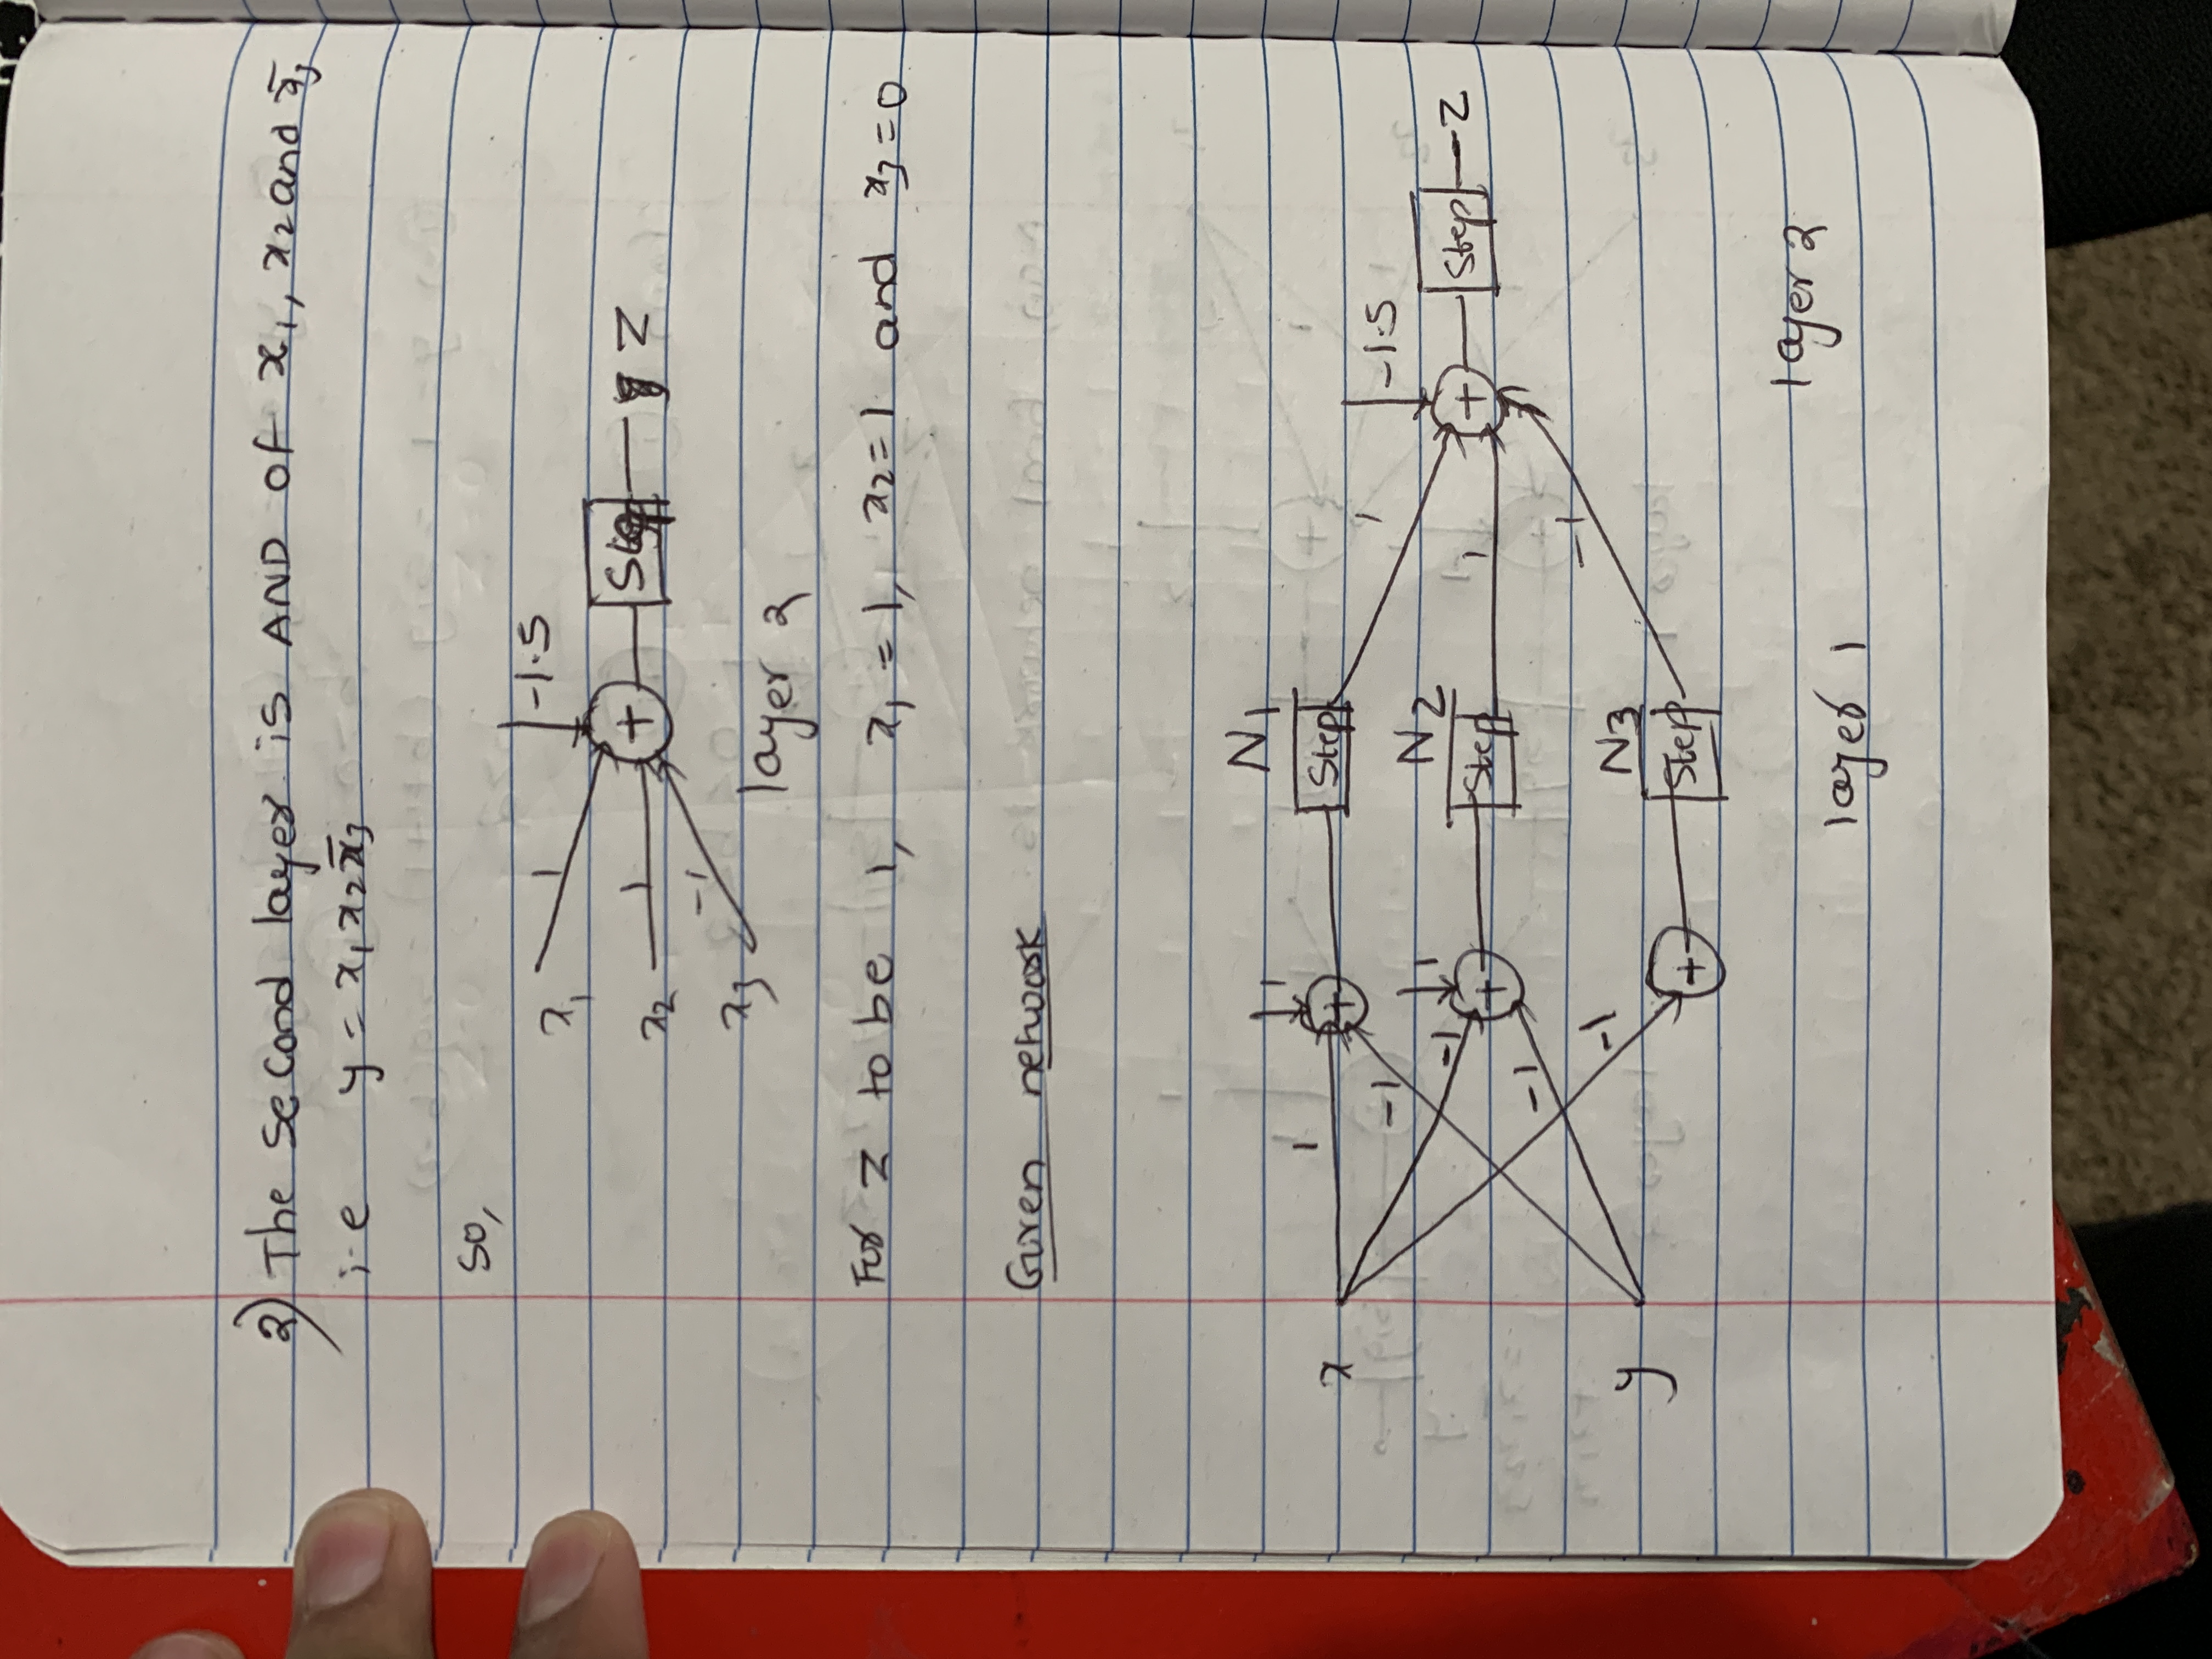 2) The second layer is AND of x₁, x₂ and x̄₃
i.e y = x₁ x₂ x̄₃
so,
-1.5
x₁ 1
x₂ 1 + Step Z
x₃ -1
layer 2
For z to be 1, x₁ = 1, x₂ = 1 and x₃ = 0
Given network
N1
x 1 1 + Step 1
-1 -1.5
N2
-1 1 + Step 1 + Step Z
-1
-1 -1
N3
y + Step
layer 2
layer 1